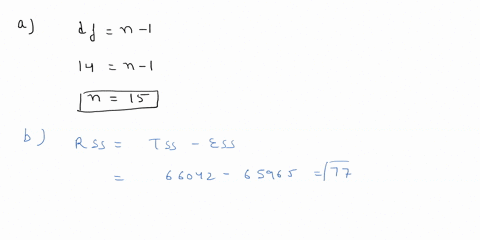 a) df = n-1
14 = n-1
n = 15
b) RSS = TSS - ESS
= 66042 - 65965 = 77